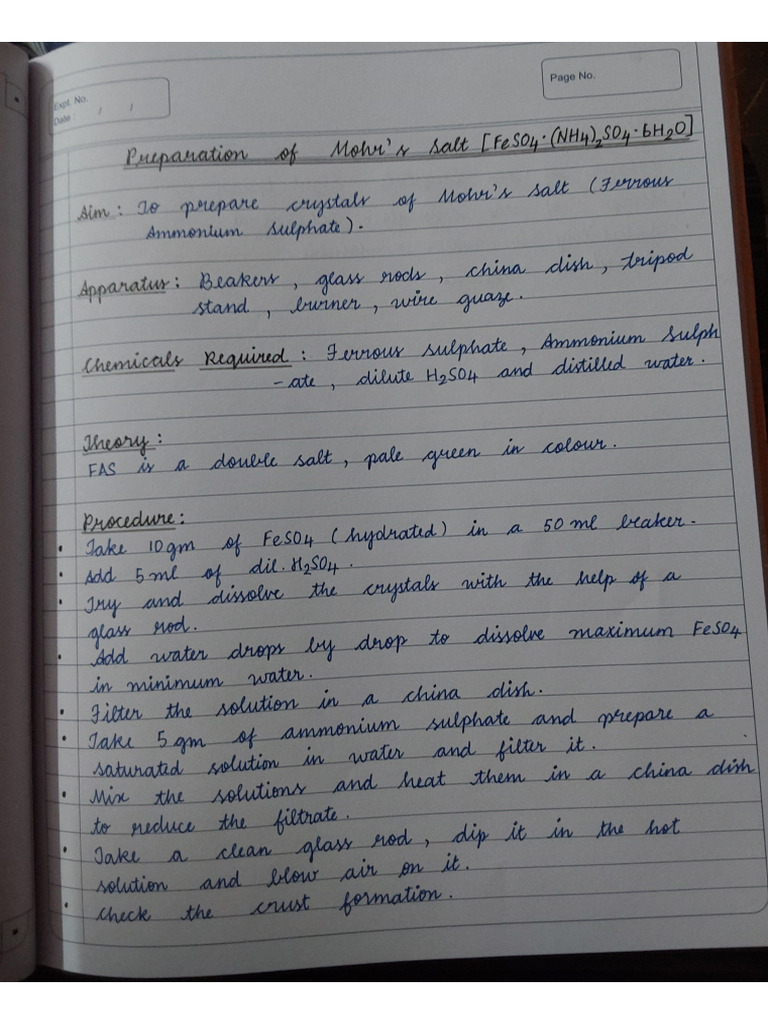 Expt. No.
Date / /
Page No.
Preparation of Mohr's Salt [FeSO4·(NH4)2SO4·6H2O]
Aim : To prepare crystals of Mohr's salt (Ferrous
Ammonium sulphate).
Apparatus : Beakers, glass rods, china dish, tripod
stand, burner, wire guaze.
Chemicals Required : Ferrous sulphate, Ammonium Sulph
-ate, dilute H2SO4 and distilled water.
Theory :
FAS is a double salt, pale green in colour.
Procedure :
• Take 10gm of FeSO4 (hydrated) in a 50 ml beaker.
• Add 5 ml of dil. H2SO4.
• Try and dissolve the crystals with the help of a
glass rod.
• Add water drops by drop to dissolve maximum FeSO4
in minimum water.
• Filter the solution in a china dish.
• Take 5 gm of ammonium sulphate and prepare a
saturated solution in water and filter it.
• Mix the solutions and heat them in a china dish
to reduce the filtrate.
• Take a clean glass rod, dip it in the hot
solution and blow air on it.
• Check the crust formation.